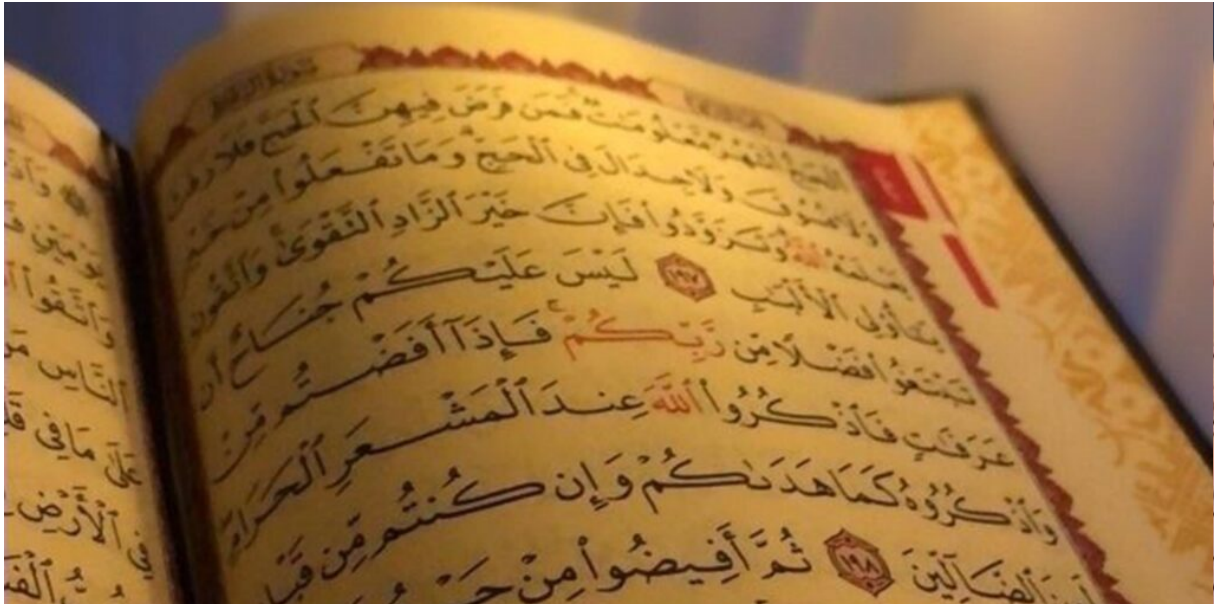 ٱلۡحَجُّ أَشۡهُرٞ مَّعۡلُومَٰتٞۚ فَمَن فَرَضَ فِيهِنَّ ٱلۡحَجَّ فَلَا رَفَثَ
وَلَا فُسُوقَ وَلَا جِدَالَ فِي ٱلۡحَجِّۗ وَمَا تَفۡعَلُواْ مِنۡ خَيۡرٖ
يَعۡلَمۡهُ ٱللَّهُۗ وَتَزَوَّدُواْ فَإِنَّ خَيۡرَ ٱلزَّادِ ٱلتَّقۡوَىٰۖ وَٱتَّقُونِ
يَٰٓأُوْلِي ٱلۡأَلۡبَٰبِ ١٩٧ لَيۡسَ عَلَيۡكُمۡ جُنَاحٌ أَن
تَبۡتَغُواْ فَضۡلٗا مِّن رَّبِّكُمۡۚ فَإِذَآ أَفَضۡتُم مِّنۡ
عَرَفَٰتٖ فَٱذۡكُرُواْ ٱللَّهَ عِندَ ٱلۡمَشۡعَرِ ٱلۡحَرَامِۖ
وَٱذۡكُرُوهُ كَمَا هَدَىٰكُمۡ وَإِن كُنتُم مِّن قَبۡ
لَمِنَ ٱلضَّآلِّينَ ١٩٨ ثُمَّ أَفِيضُواْ مِنۡ حَيۡ
ٱلنَّاسِ مَن
عَلَىٰ مَا فِي
فِي ٱلۡأَرۡضِ